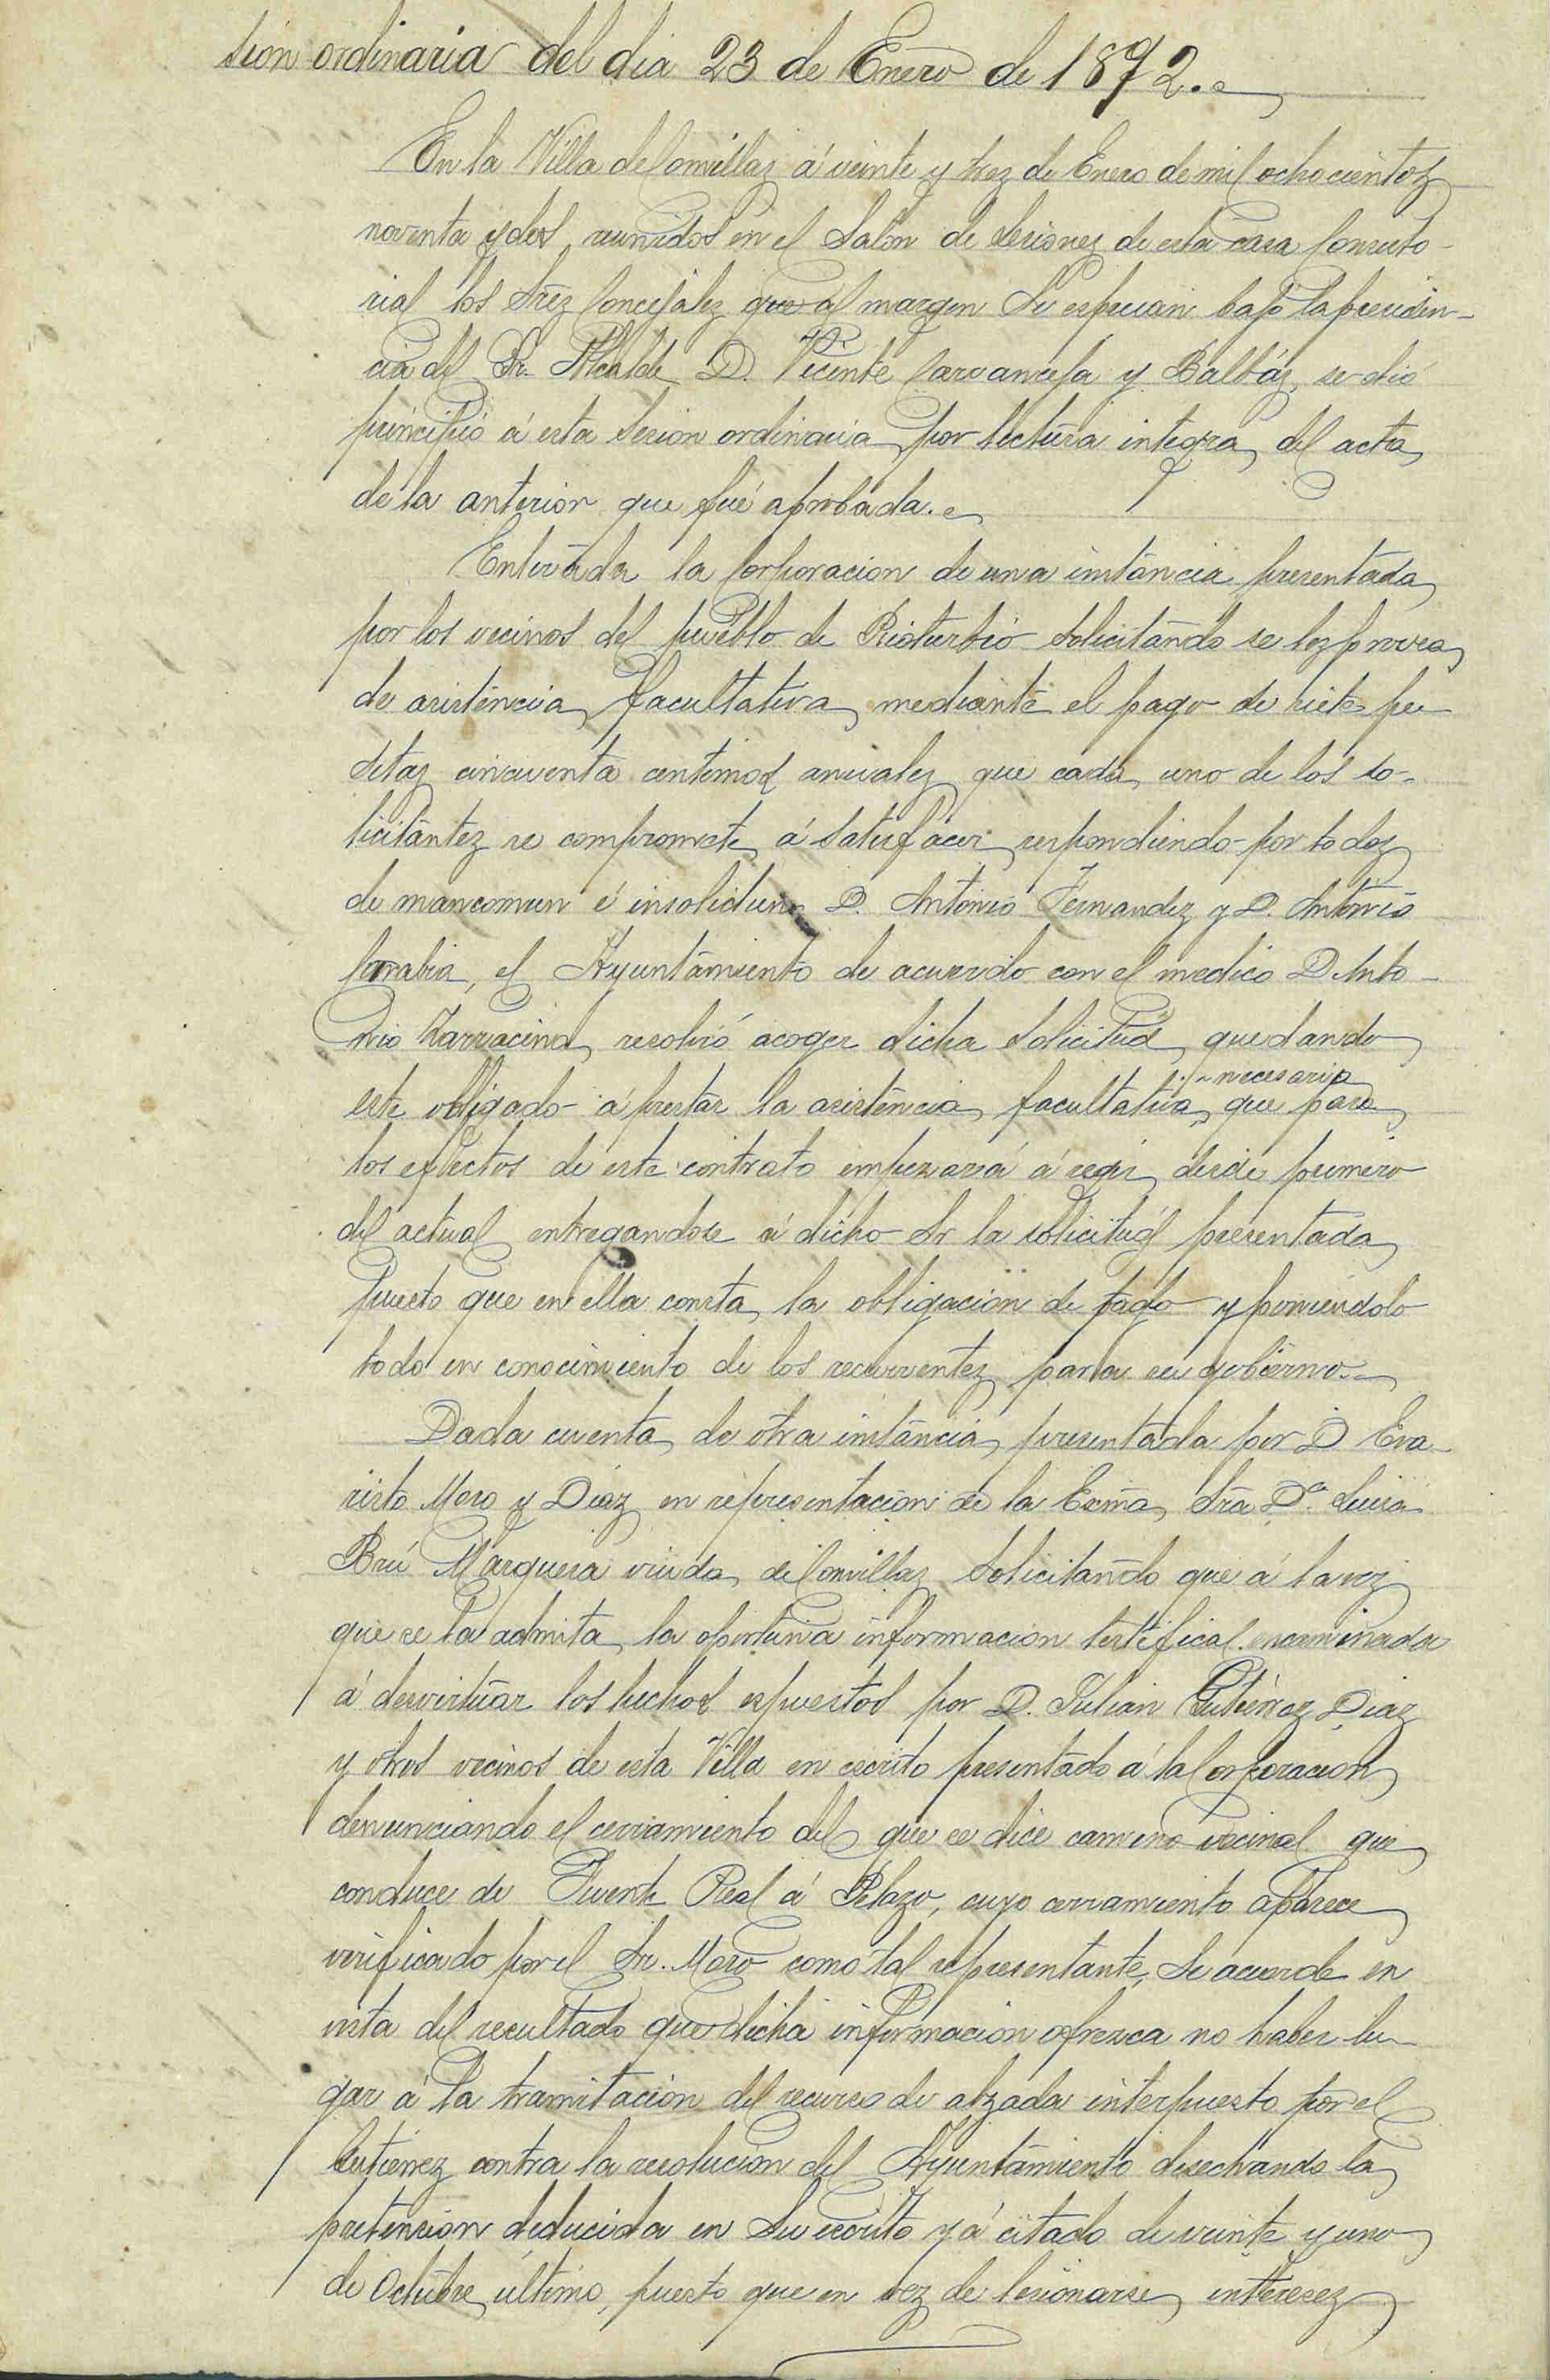 sion ordinaria del dia 23 de Enero de 1892.
En la Villa de Comillas á veinte y tres de Enero de mil ochocientos
noventa y dos, reunidos en el Salón de Sesiones de esta casa Consisto-
rial los Sres Concejales que al margen Se espresan bajo la presiden-
cia del Sr. Alcalde D. Vicente Carranceja y Balbás, se dió
principio á esta Sesion ordinaria por lectura integra del acta
de la anterior que fué aprobada.
Enterada la Corporacion de una instáncia presentada
por los vecinos del pueblo de Rioturbio Solicitando se les provea
de asisténcia facultativa mediante el pago de siete pe-
setas cincuenta centimos anuales que cada uno de los so-
licitantes se compromete á Satisfacer respondiendo por todos
de mancomun é insolidum D. Antonio Fernandez y D. Antonio
Carabia, el Ayuntamiento de acuerdo con el medico D. Anto-
nio Zarracina, resolvió acoger dicha Solicitud, quedando
este obligado á prestar la asisténcia facultativa necesaria que para
los efectos de este contrato empezará á regir desde primero
del actual entregandose á dicho Sr la solicitud presentada
puesto que en ella consta la obligacion de pago y poniéndolo
todo en conocimiento de los recurrentes para su gobierno.
Dada cuenta de otra instáncia presentada por D Eva-
risto Moro y Diaz en representacion de la Exma Sra Dª Luisa
Brú Marquesa viuda de Comillas Solicitando que á la vez
que se la admita la oportuna informacion testifical encaminada
á desvirtuar los hechos espuestos por D. Julian Gutierrez Diaz
y otros vecinos de esta Villa en escrito presentado á la Corporacion
denunciando el cerramiento del que se dice camino vecinal que
conduce de Fuente Real á Pelazo, cuyo cerramiento aparece
verificado por el Sr. Moro como tal representante, Se acuerde en
vista del resultado que dicha informacion ofrezca no haber lu-
gar á la tramitacion del recurso de alzada interpuesto por el
Gutierrez contra la resolucion del Ayuntamiento desechando la
pretension deducida en Su escrito yá citado de veinte y uno
de Octubre último, puesto que en vez de lesionarse intereses